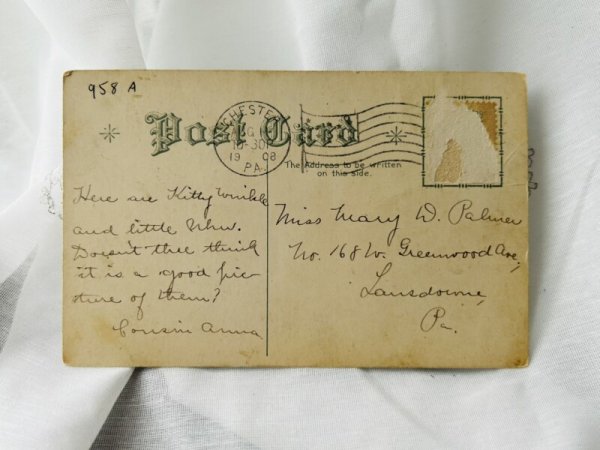 958 A
Post Card
CHESTER
10-30
19 08
PA.
The Address to be written
on this Side.
Here are Kitty Wrinkle
and little
Doesn't thee think
it is a good pic-
ture of them?
Cousin Anna
Miss Mary D. Palmer
No. 168 W. Greenwood Ave,
Lansdowne,
Pa.